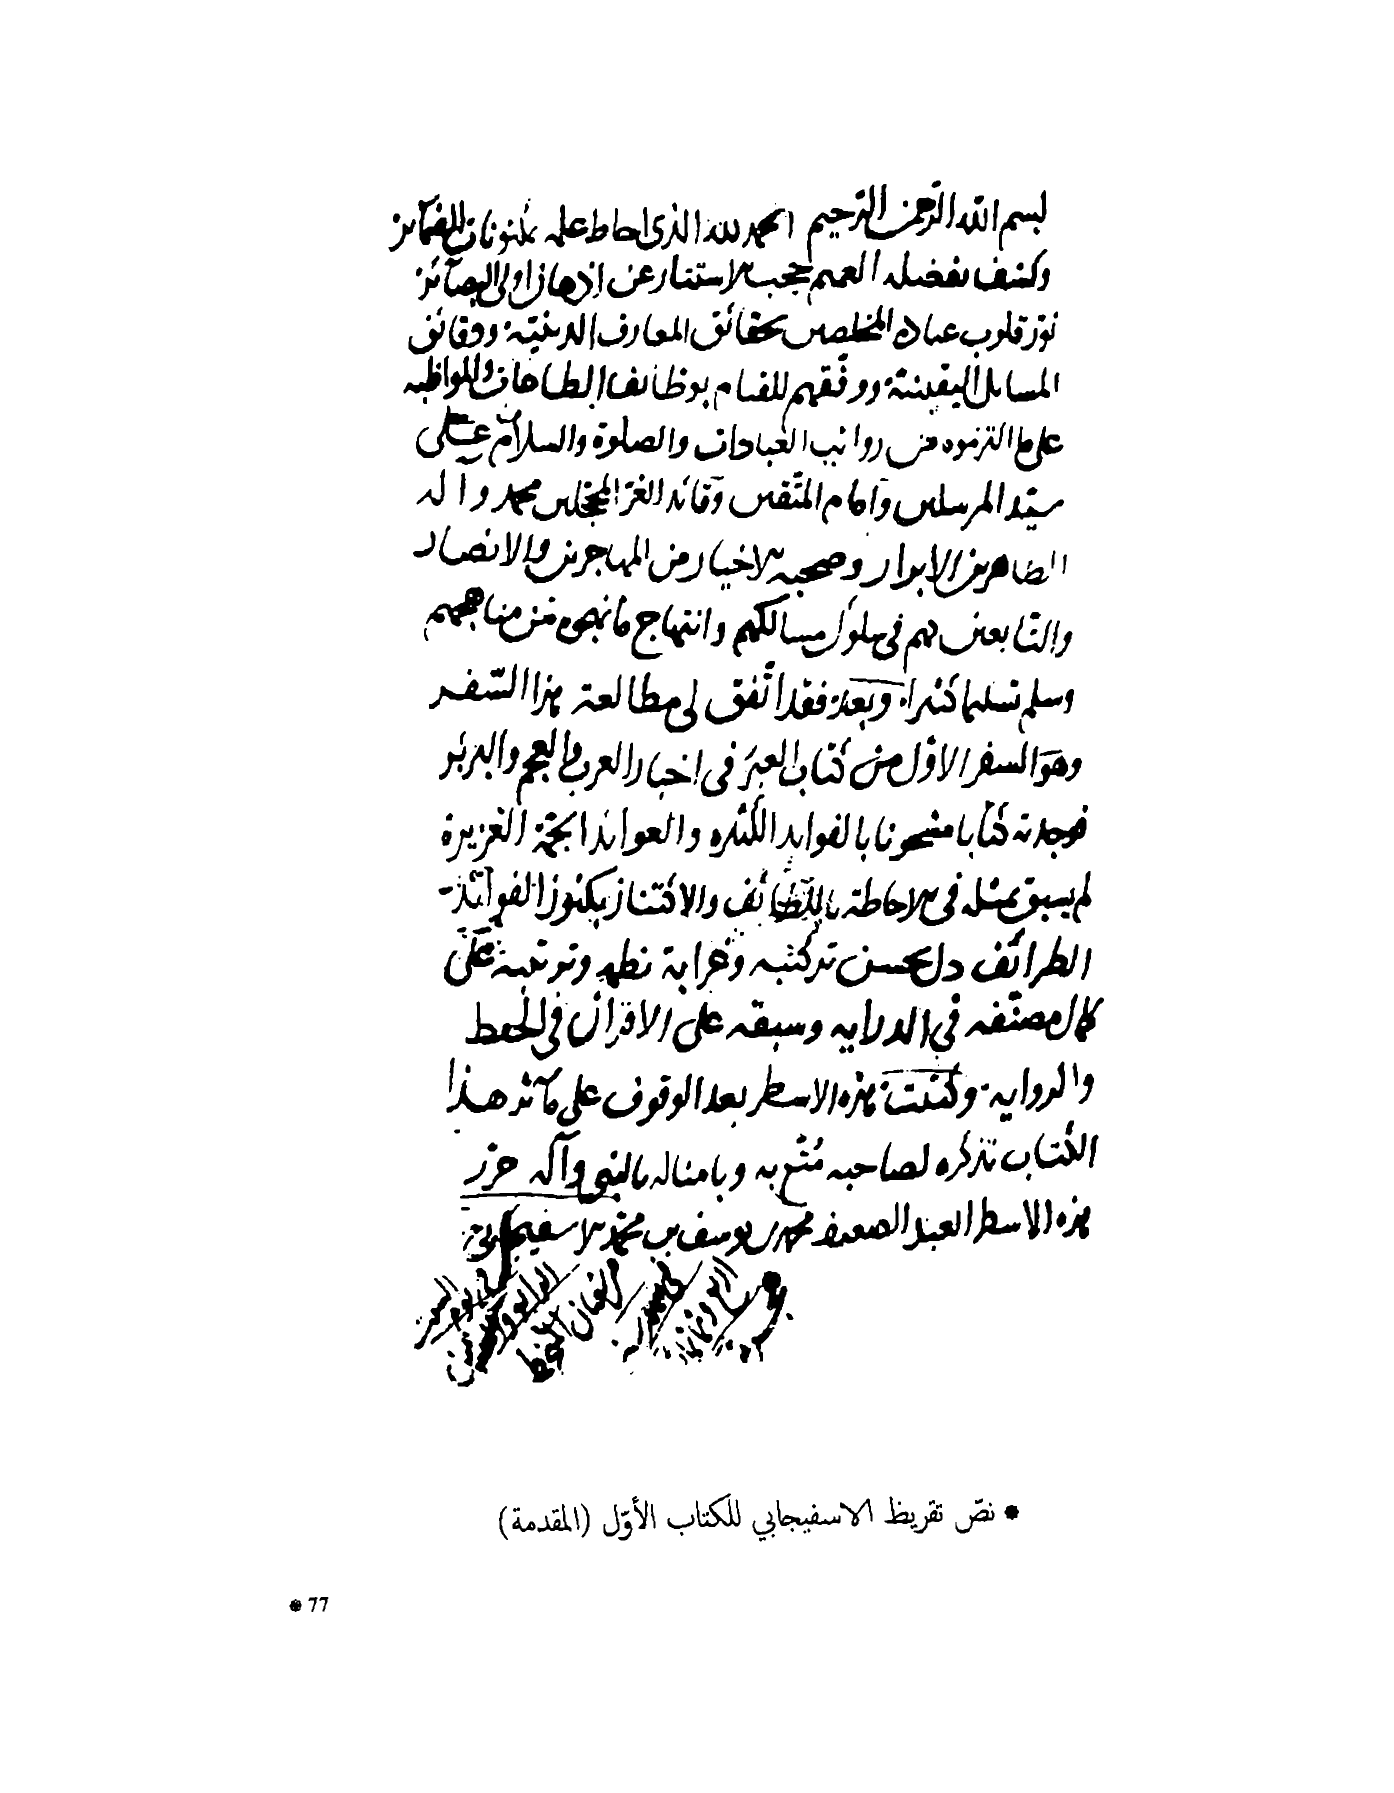 بسم الله الرحمن الرحيم الحمد لله الذى احاط علمه بمكنونات الضمآئر
وكشف بفضله العميم حجب الاستتار عن اذهان اولى البصآئر
نوّر قلوب عباده المخلصين بحقائق المعارف الدينيّة ودقائق
المسائل اليقينيّة ووفّقهم للقيام بوظائف الطاعات والمواظبه
على ما التزموه من رواتب العبادات والصلوة والسلام على
سيّد المرسلين وامام المتّقين وقائد الغرّ المحجلين محمد وآله
الطاهرين الابرار وصحبه الاخيار من المهاجرين والانصار
والتّابعين لهم فى سلوك مسالكهم وانتهاج ما نهجوه من مناهجهم
وسلم تسليما كثيرا وبعد فقد اتّفق لى مطالعة هذا السّفر
وهو السفر الاوّل من كتاب العبر فى اخبار العرب والعجم والبربر
فوجدته كتابا مشحونا بالفوايد الكثيره والعوائد الجمّة الغزيرة
لم يسبق بمثله فى الاحاطة باللّطآئف والاكتناز بكنوز الفوآئد
الطرائف دل بحسن تركيبه وغرابة نظمه وترتيبه على
كمال مصنّفه في الدرايه وسبقه على الاقران فى الحفظ
والروايه وكتبت هذه الاسطر بعد الوقوف على مآثر هذا
الكتاب تذكره لصاحبه مُتّع به وبامثاله بالنبي وآله حرّر
هذه الاسطر العبد الضعيف محمد بن يوسف بن محمّد الاسفيجابى
* نصّ تقريظ الاسفيجابي للكتاب الأوّل (المقدمة)
77 *